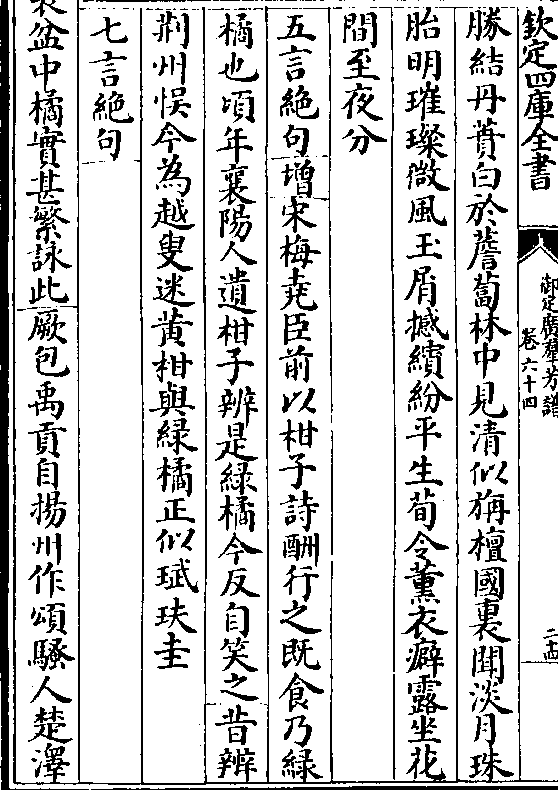 欽定四庫全書
御定廣羣芳譜
卷六十四
二十四
勝結丹蕡白於薝蔔林中見清似旃檀國裏聞淡月珠
胎明璀璨微風玉屑撼繽紛平生荀令薰衣癖露坐花
間至夜分
五言絶句增宋梅堯臣前以柑子詩酬行之既食乃緑
橘也頃年襄陽人遺柑子辨是緑橘今反自笑之昔辨
荆州悞今為越叟迷黄柑與緑橘正似珷玞圭
七言絶句
盆中橘實甚繁詠此厥包禹貢自揚州作頌騷人楚澤